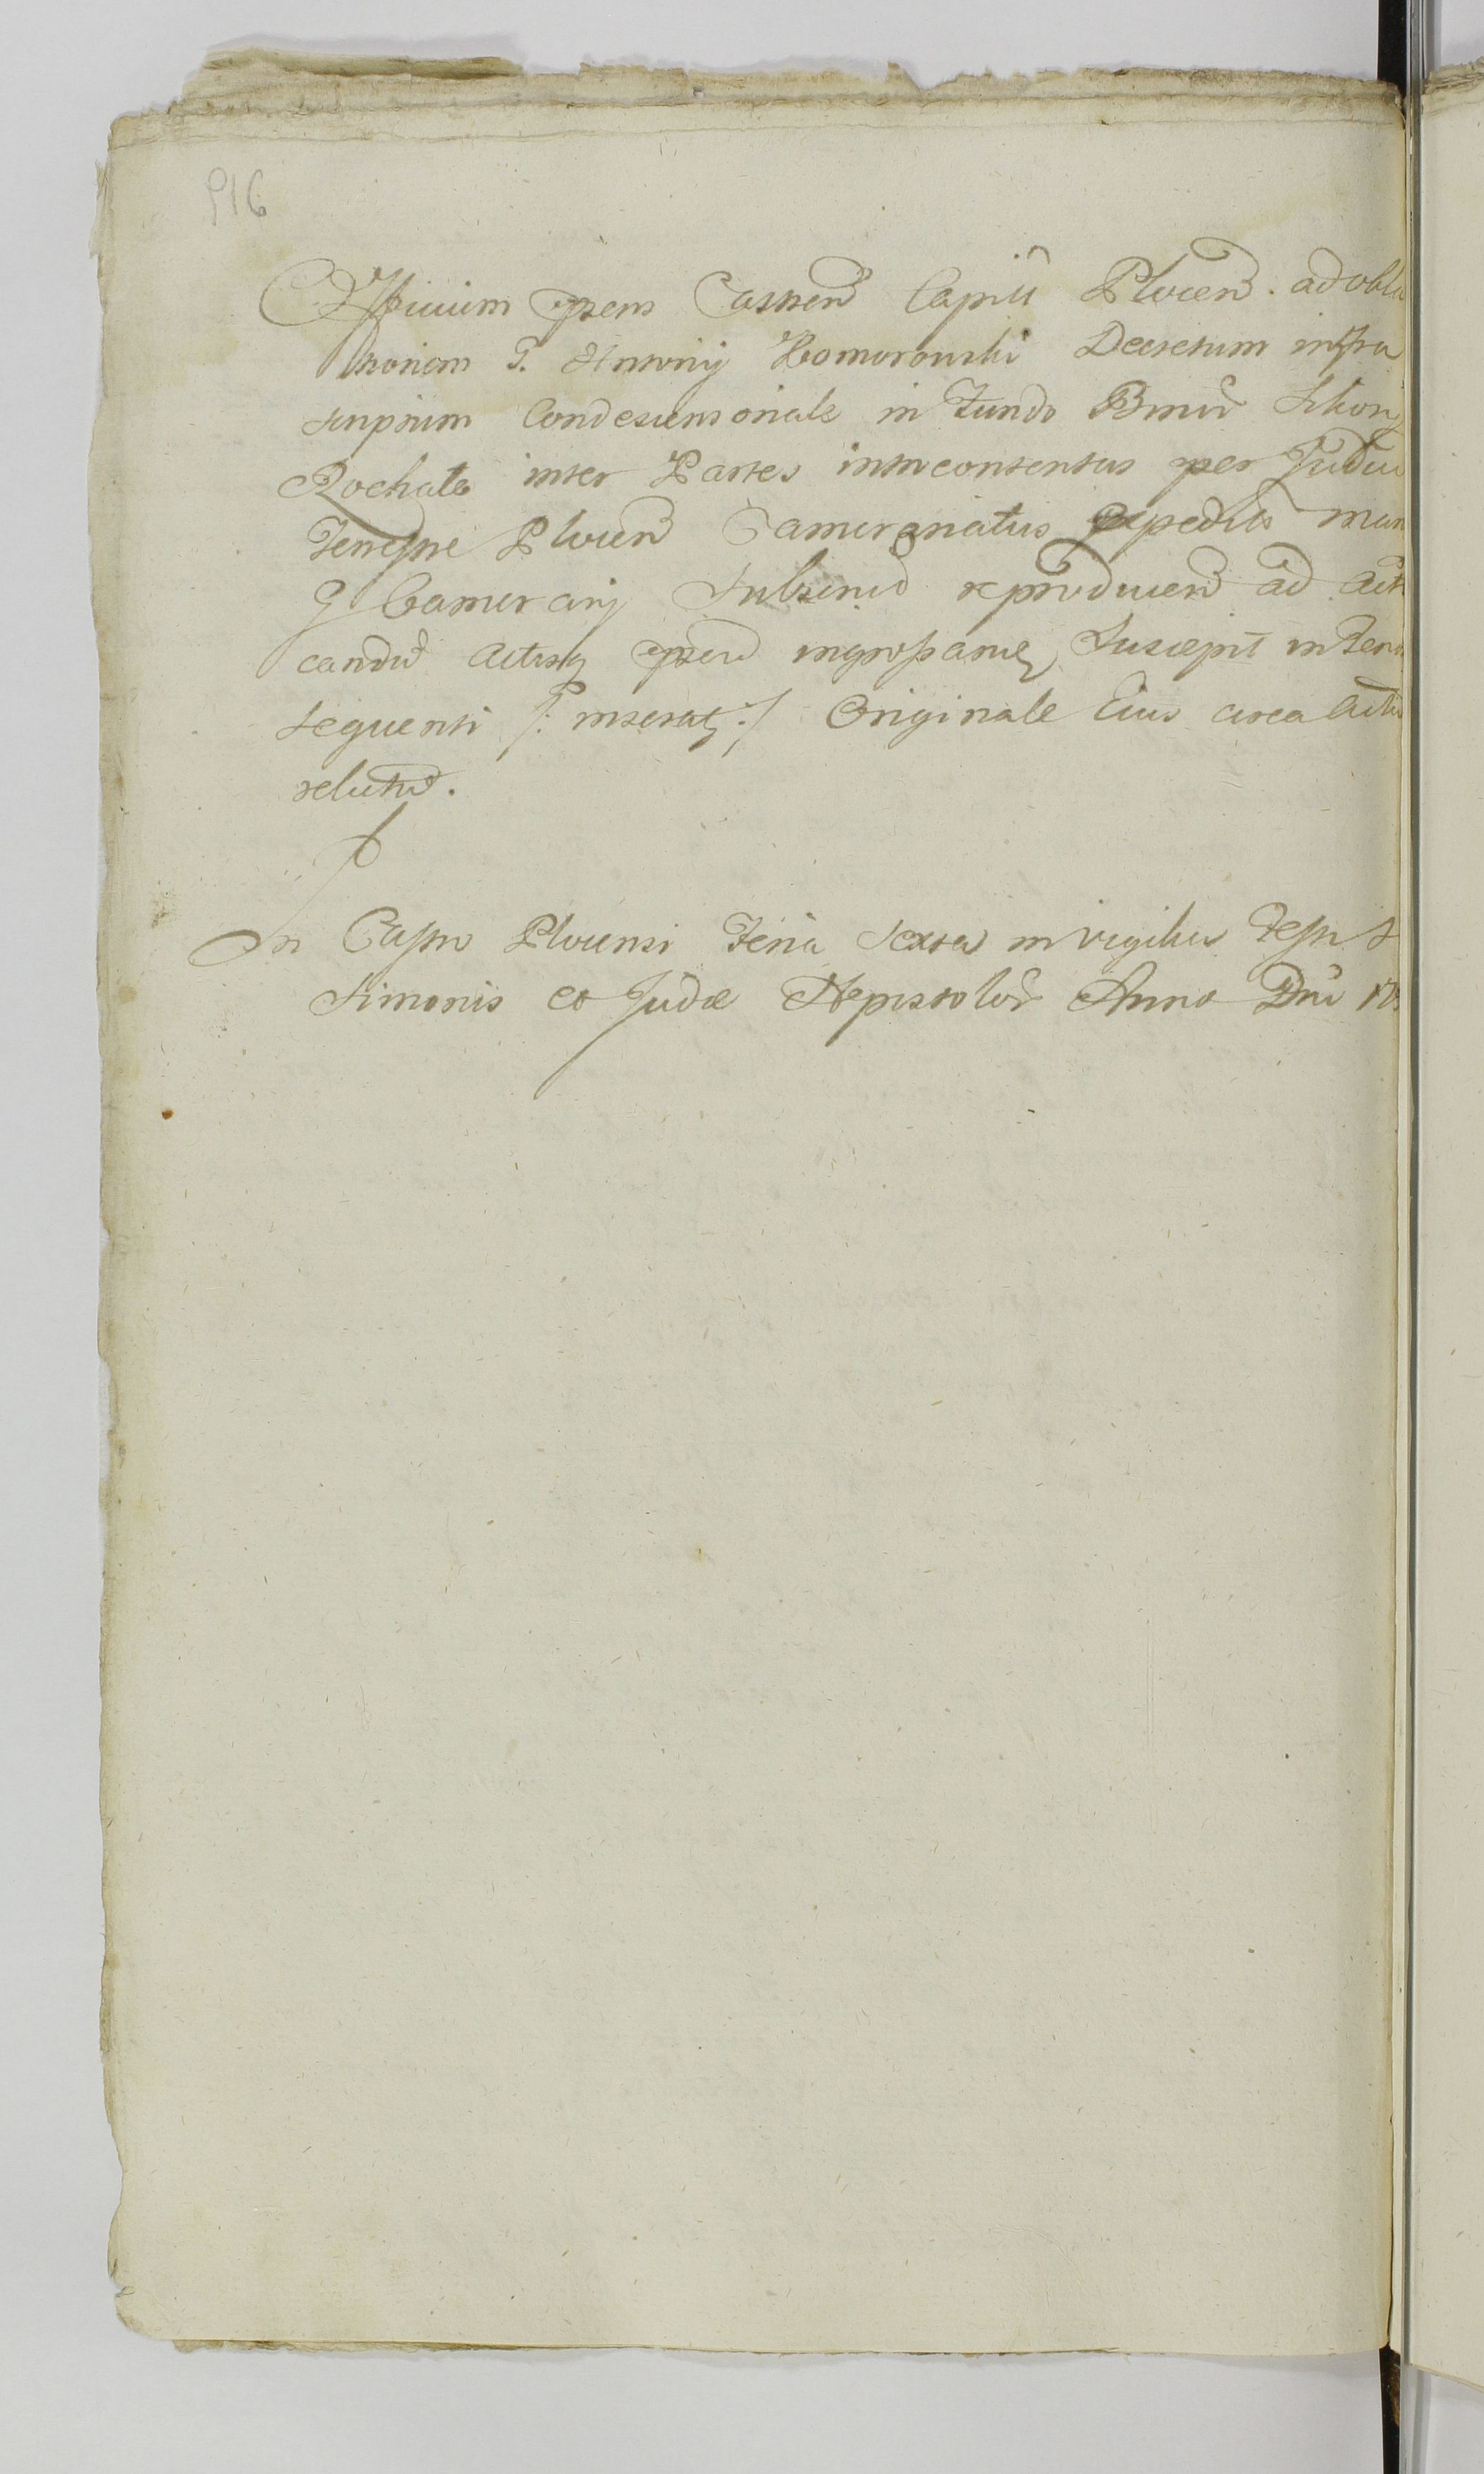 916
Officium pñens Castren Capitł Plocen. ad obla
tionem G. Antonij Komorowski Decretum infra
scriptum Condescensoriale in Fundo Bonor Sikory
Rochale inter Partes intrncontentas per Judiciu
Terrestre Plocen Camerariatus expeditu manu
G Camerarij Subscriptu reproducen ad acti
candu Actisq pñen ingrossand, Suscepit in Term
sequenti /: inserat :/ Originale Eius circa Actu
relictu.
In Castro Plocensi Feria Sexta in vigilia Festi S
Simonis et Judæ Apostolor Anno Dni 17